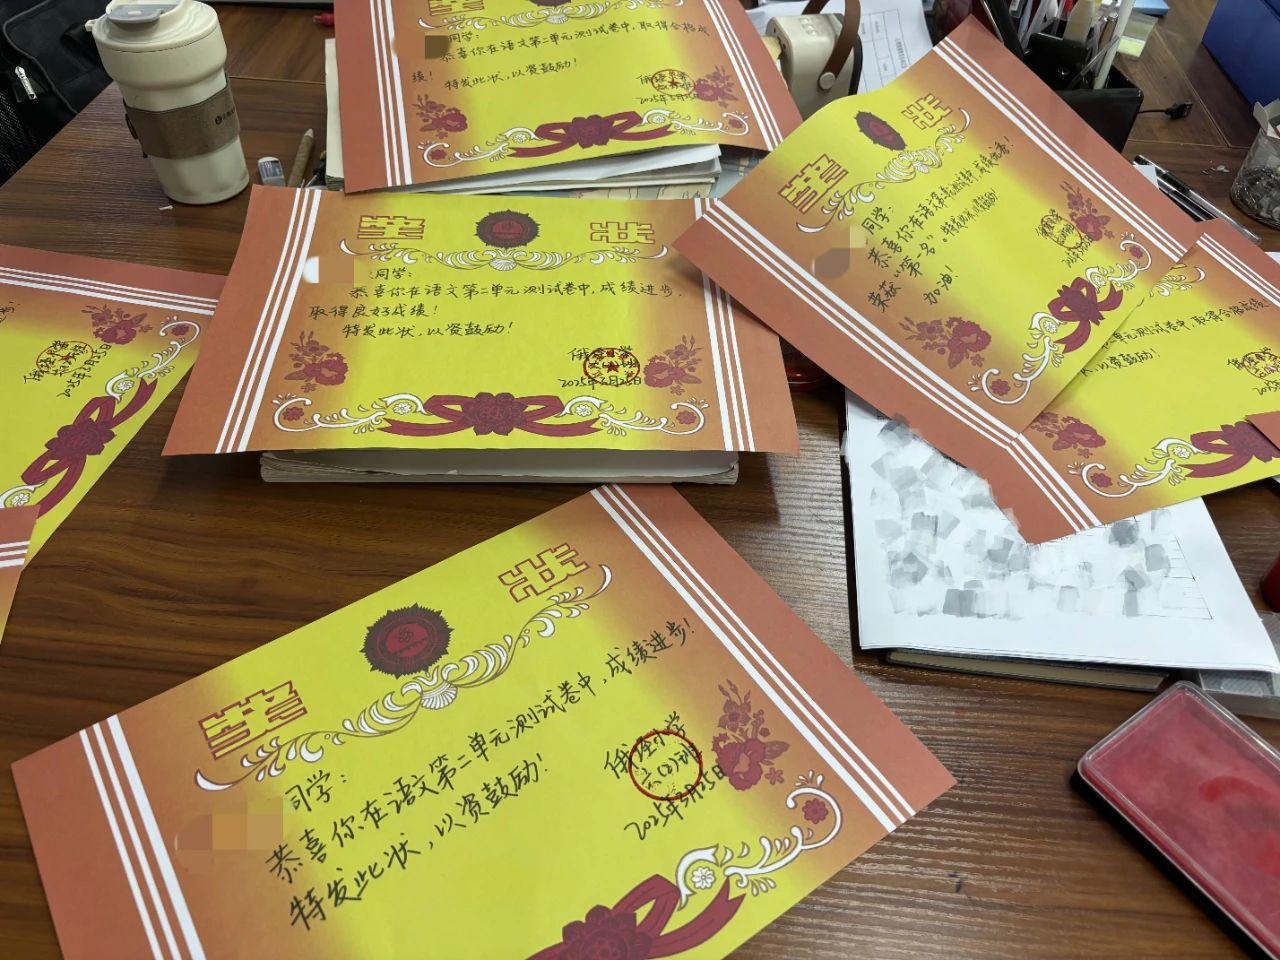 同学:
恭喜你在语文第二单元测试卷中,取得合格成
绩!
特发此状,以资鼓励!
2025年3月25日
荣 状
同学:
恭喜你在语文第二单元测试卷中,成绩进步,
取得良好成绩!
特发此状,以资鼓励!
2025年3月25日
荣 状
同学:
恭喜你在语文第二单元测试卷中,成绩优秀!
荣获“第一名”。特发此状,以资鼓励!
加油!
单元测试卷中,取得合格成绩
以资鼓励!
2025年3月25日
荣 状
同学:
恭喜你在语文第二单元测试卷中,成绩进步!
特发此状,以资鼓励!
六(2)班
2025年3月25日